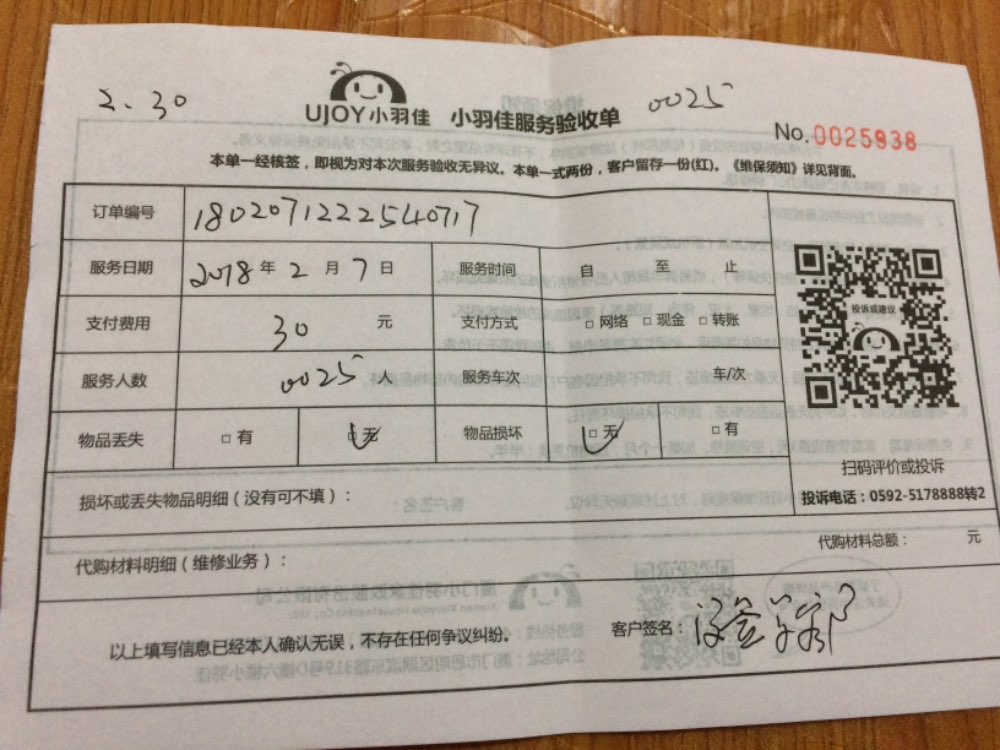 2.30
0025
UJOY小羽佳 小羽佳服务验收单
No.0025938
本单一经核签，即视为对本次服务验收无异议。本单一式两份，客户留存一份(红)。《维保须知》详见背面。
订单编号 1802071222540717
服务日期 2018年2月7日 服务时间 自 至 止
支付费用 30 元 支付方式 □网络 □现金 □转账
投诉或建议
服务人数 0025 人 服务车次 车/次
物品丢失 □有 □无 物品损坏 □无 □有
扫码评价或投诉
投诉电话：0592-5178888转2
损坏或丢失物品明细（没有可不填）：
代购材料总额： 元
代购材料明细（维修业务）：
以上填写信息已经本人确认无误，不存在任何争议纠纷。
客户签名：